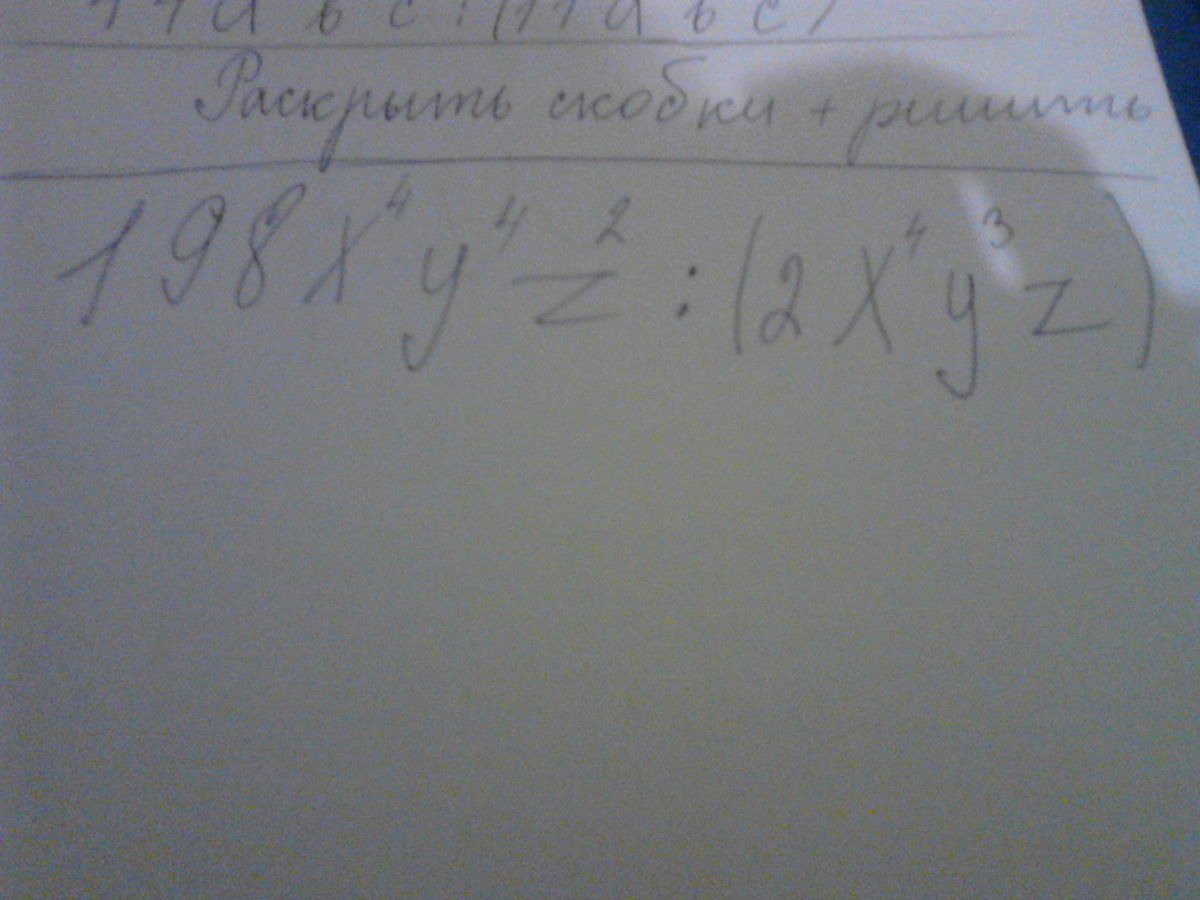 Раскрыть скобки + решить
198x⁴y⁴z² : (2x⁴y³z)